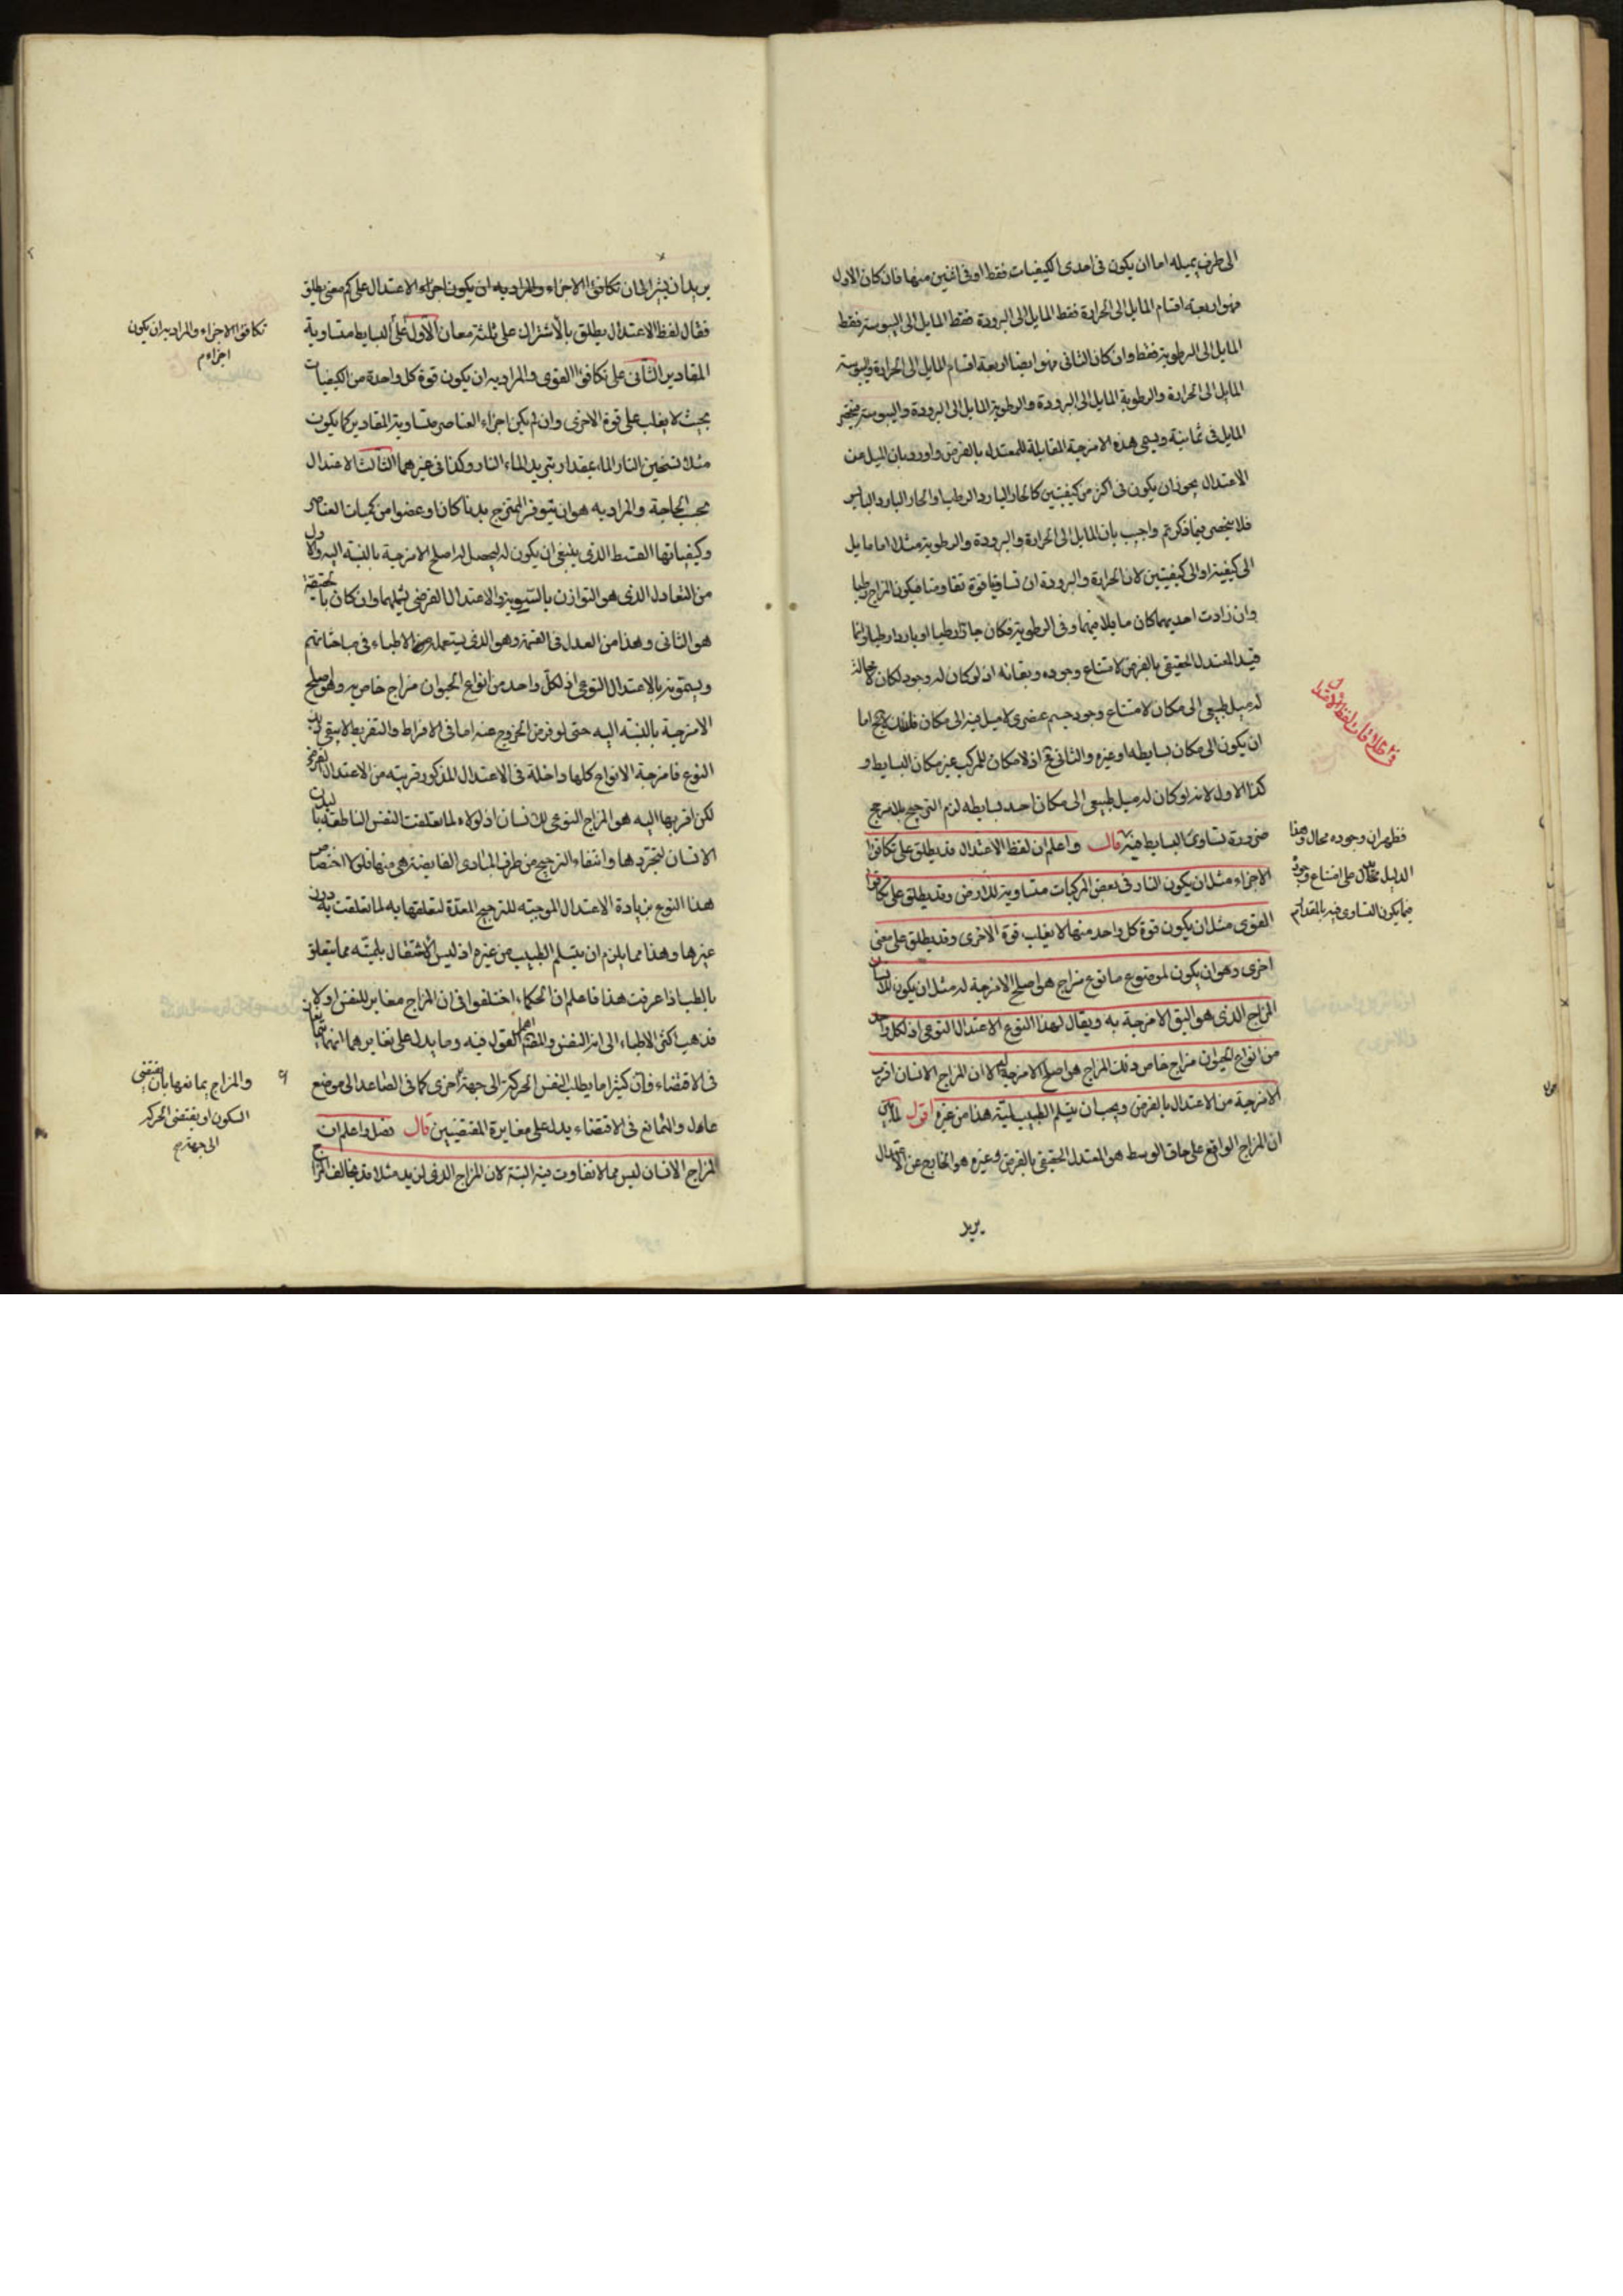 الى طرف يميله اما ان يكون فى احدى الكيفيات فقط او فى اثنين منها فان كان الاول
فهو اربعة اقسام المايل الى الحرارة فقط المايل الى البرودة فقط المايل الى اليبوسة فقط
المايل الى الرطوبة فقط وان كان الثانى فهو ايضا اربعة اقسام المايل الى الحرارة واليبوسة
المايل الى الحرارة والرطوبة المايل الى البرودة والرطوبة المايل الى البرودة واليبوسة فينحصر
المايل فى ثمانية ويسمى هذه الامزجة المقابلة للمعتدل بالفرض واورد بان الميل عن
الاعتدال يجوز ان يكون فى اكثر من كيفيتين كالحار البارد الرطب او الحار البارد اليابس
فلا ينحصر فيما ذكرتم واجيب بان المايل الى الحرارة والبرودة والرطوبة مثلا اما مايل
الى كيفية او الى كيفيتين لان الحرارة والبرودة ان تساويا قوة تقاومتا فيكون المزاج رطبا
وان زادت احديهما كان مايلا فيها وفى الرطوبة فكان حارا رطبا او باردا رطبا وانما
قيد المعتدل الحقيقى بالفرض لامتناع وجوده وبقائه اذ لو كان له وجود لكان لا محالة
له ميل طبيعى الى مكان لامتناع وجود جسم عنصرى لا ميل فيه الى مكان فح اما
ان يكون الى مكان بسايطه او غيره والثانى مح اذ لا مكان للمركب غير مكان البسايط و
كذا الاول لانه لو كان له ميل طبيعى الى مكان احد بسايطه لزم الترجيح بلا مرجح
ضرورة تساوى البسايط فيه قال واعلم ان لفظ الاعتدال قد يطلق على تكافؤ
الاجزاء مثل ان يكون النار فى بعض المركبات متساوية للارض وقد يطلق على تكافؤ
القوى مثل ان يكون قوة كل واحد منها لا يغلب قوة الاخرى وقد يطلق على معنى
اخرى وهو ان يكون لموضوع ما نوع مزاج هو اصلح الامزجة له مثل ان يكون للانسان
المزاج الذى هو اليق الامزجة به ويقال لهذا النوع الاعتدال النوعى اذ لكل واحد
من انواع الحيوان مزاج خاص وذلك المزاج هو اصلح الامزجة له الا ان المزاج الانسان اقرب
الامزجة من الاعتدال بالفرض ويجب ان يتسلم الطبيب لمية هذا من غيره اقول لما بين
ان المزاج الواقع على حاق الوسط هو المعتدل الحقيقى بالفرض وغيره هو الخارج عن الاعتدال
يريد
فى اطلاقات لفظ الاعتدال
فظهر ان وجوده محال وهذا
الدليل على امتناع وجود
فيما يكون التساوى فيه بالمقدار م
يريد ان يشير الى ان تكافؤ الاجزاء والمراد به ان يكون اجزاء الاعتدال على كم معنى يطلق
فقال لفظ الاعتدال يطلق بالاشتراك على ثلثة معان الاول على البسايط متساوية
المقادير الثانى على تكافؤ القوى والمراد به ان يكون قوة كل واحدة من الكيفيات
بحيث لا يغلب على قوة الاخرى وان لم يكن اجزاء العناصر متساوية المقادير كما يكون
مثلا تسخين النار الماء بمقدار تبريد الماء النار وكذا فى غيرهما الثالث الاعتدال
بحسب الحاجة والمراد به هو ان يتوفر الممتزج بدنا كان او عضوا من كميات العناصر
وكيفياتها القسط الذى ينبغى ان يكون له ليحصل له اصلح الامزجة بالنسبة اليه والاول
من التعادل الذى هو التوازن بالسوية والاعتدال الفرضى يشملهما وان كان بالحقيقة
هو الثانى وهذا من العدل فى القسمة وهو الذى يستعمله الاطباء فى مباحثاتهم
ويسمونه بالاعتدال النوعى اذ لكل واحد من انواع الحيوان مزاج خاص به وهو اصلح
الامزجة بالنسبة اليه حتى لو فرض الخروج عنه اما فى الافراط والتفريط لا يبقى ذلك
النوع فامزجة الانواع كلها داخلة فى الاعتدال المذكور قريبة من الاعتدال الفرضى
لكن اقربها اليه هو المزاج النوعى للانسان اذ لولاه لما تعلقت النفس الناطقة ببدن
الانسان لتجردها وانتفاء الترجيح من طرف المبادى الفايضة هى منها فلولا اختصاص
هذا النوع بزيادة الاعتدال الموجبة للترجيح المعدة لتعلقها به لما تعلقت به دون
غيرها وهذا مما يلزم ان يتسلم الطبيب من غيره اذ ليس الاشتغال بلميته مما يتعلق
بالطب اذا عرفت هذا فاعلم ان الحكماء اختلفوا فى ان المزاج مغاير للنفس او لا
فذهب اكثر الاطباء الى انه النفس والمصنف اهمل القول فيه وما يدل على تغايرهما انهما يتمانعان
فى الاقتضاء فان كثيرا ما يطلب النفس الحركة الى جهة اخرى كما فى الصاعد الى موضع
عال والتمانع فى الاقتضاء يدل على مغايرة المقتضيين قال فصل واعلم ان
المزاج الانسان ليس مما لا تفاوت فيه البتة لان المزاج الذى لزيد مثلا قد يخالف المزاج
تكافؤ الاجزاء والمراد به ان يكون
اجزاء م
والمزاج يمانعها بان يقتضى
السكون او يقتضى الحركة
الى جهة م